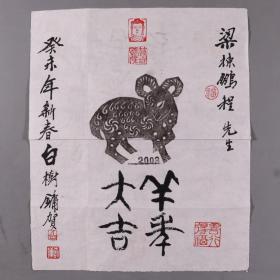 梁栋鹏程先生
2003
羊年
大吉
癸未年新春白树镛贺